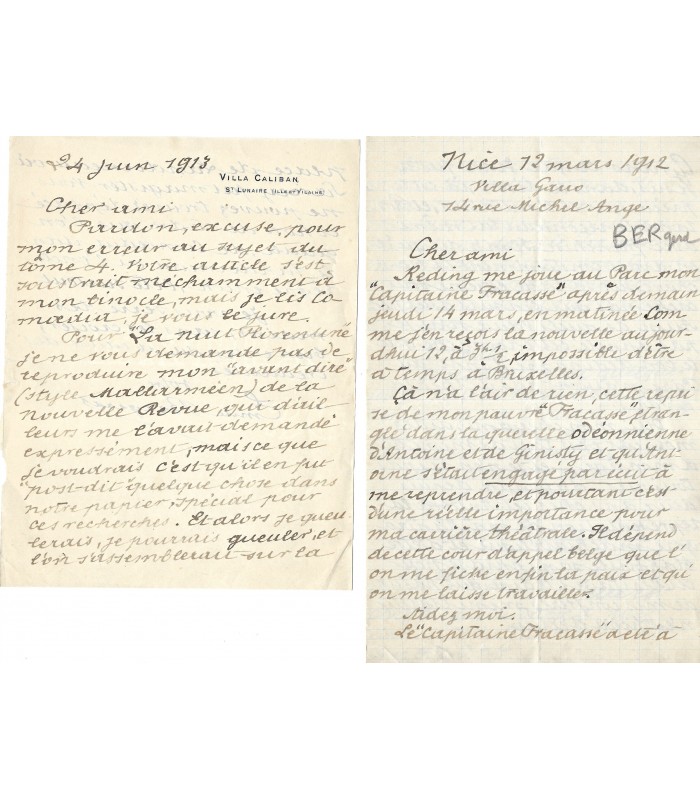 24 juin 1913
VILLA CALIBAN
ST LUNAIRE (ILLE ET VILAINE)
Cher ami
Pardon, excuse, pour
mon erreur au sujet du
tôme 4. Votre article s'est
soustrait méchamment à
mon binocle, mais je lis Co
mœdia je vous le jure.
Pour "La nuit florentine"
je ne vous demande pas de
reproduire mon "avant dire"
(style Mallarméen) de la
nouvelle Revue, qui d'ail
leurs me l'avait demandé
expressément, mais ce que
je voudrais c'est qu'il en fut
"post-dit" quelque chose dans
notre papier, spécial pour
ces recherches. Et alors je gueu
lerais, je pourrais gueuler, et
l'on s'assemblerait sur la
Nice 12 mars 1912
Villa
14 rue Michel Ange
BERgerd
Cher ami
Reding me joue au Parc mon
"Capitaine Fracasse" après demain
jeudi 14 mars, en matinée. Com
me j'en reçois la nouvelle aujour-
d'hui 12, à 3h 1/2, impossible d'être
à temps à Bruxelles.
Çà n'a l'air de rien, cette repri
se de mon pauvre "Fracasse", étran
glé dans la querelle odéonnienne
d'Antoine et de Ginisty et qu'Ant
oine s'était engagé par écrit à
me reprendre, et pourtant c'est
d'une réelle importance pour
ma carrière théâtrale. Il dépend
de cette cour d'appel belge que l'
on me fiche enfin la paix et qu'
on me laisse travailler.
Aidez moi.
Le "Capitaine Fracasse" a été à